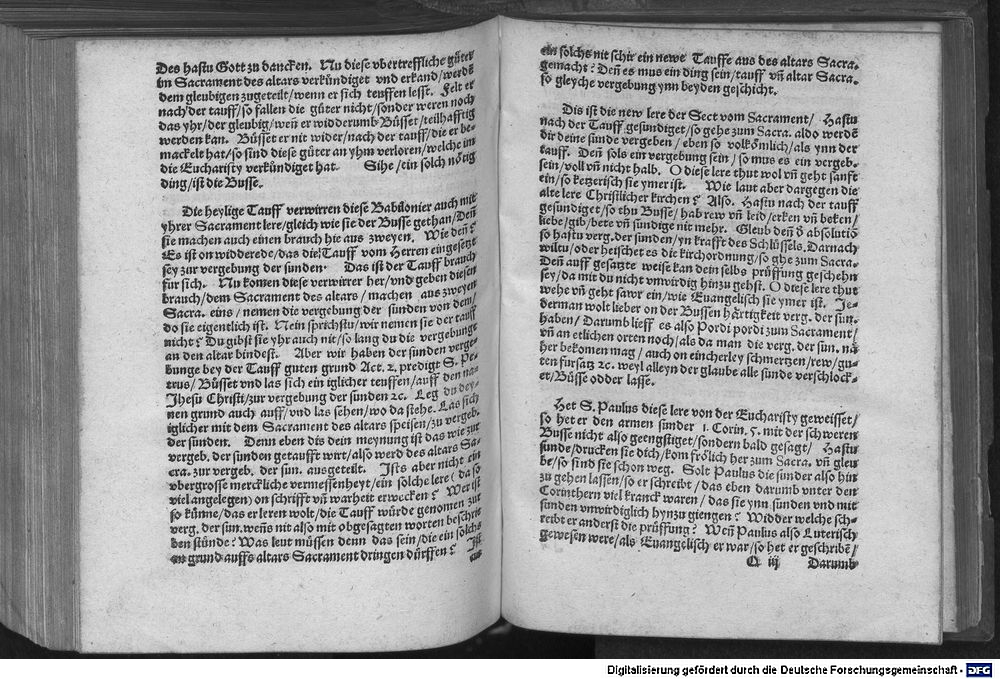 Des hastu Gott zu dancken. Nu diese vbertreffliche güter
im Sacrament des altars verkündiget vnd erkand/werdē
dem gleubigen zugeteilt/wenn er sich teuffen lesst. Felt er
nach der tauff/so fallen die güter nicht/sonder weren noch
das yhr/der gleubig/weñ er widderumb Büsset/teilhafftig
werden kan. Büsset er nit wider/nach der tauff/die er be-
mackelt hat/so sind diese güter an yhm verloren/welche im
die Eucharisty verkündiget hat. Sihe/ein solch nötig
ding/ist die Busse.
Die heylige Tauff verwirren diese Babilonier auch mit
yhrer Sacrament lere/gleich wie sie der Busse gethan/Deñ
sie machen auch einen brauch hie aus zweyen. Wie deñ?
Es ist on widderede/das die Tauff vom Herren eingesetzt
sey zur vergebung der sunden. Das ist der Tauff brauch
für sich. Nu komen diese verwirrer her/vnd geben diesen
brauch/dem Sacrament des altars/machen aus zweyen
Sacra. eins/nemen die vergebung der sunden von dem/
do sie eigentlich ist. Nein sprichstu/wir nemen sie der tauff
nicht? Du gibst sie yhr auch nit/so lang du die vergebung
an den altar bindest. Aber wir haben der sunden verge-
bunge bey der Tauff guten grund Act. 2. predigt S. Pe-
trus/Büsset vnd las sich ein iglicher teuffen/auff den na-
Jhesu Christi/zur vergebung der sunden ꝛc. Leg du dey-
nen grund auch auff/vnd las sehen/wo da stehe. Las sich
iglicher mit dem Sacrament des altars speisen/zu vergeb.
der sunden. Denn eben dis dein meynung ist das wie zur
vergeb. der sunden getaufft wirt/also werd des altars Sa-
cra. zur vergeb. der sun. ausgeteilt. Ists aber nicht ein
vbergrosse merckliche vermessenheyt/ein solche lere (da so
viel angelegen) on schrifft vñ warheit erwecken? Wer ist
so künne/das er leren wolt/die Tauff würde genomen zur
verg. der sun. weñs nit also mit obgesagten worten beschrie
ben stünde? Was leut müssen denn das sein/die ein solchs
on grund auffs altars Sacrament dringen dürffen? Ist
aus
ein solchs nit schir ein newe Tauffe aus des altars Sacra.
gemacht? Deñ es mus ein ding sein/tauff vñ altar Sacra.
so gleyche vergebung ynn beyden geschicht.
Dis ist die new lere der Sect vom Sacrament/ Hastu
nach der Tauff gesundiget/so gehe zum Sacra. aldo werdē
dir deine sunde vergeben/eben so volkömlich/als ynn der
tauff. Deñ sols ein vergebung sein/so mus es ein vergeb.
sein/voll vñ nicht halb. O diese lere thut wol vñ geht sanft
ein/so ketzerisch sie ymer ist. Wie laut aber dargegen die
alte lere Christlicher kirchen? Also. Hastu nach der tauff
gesundiget/so thu Busse/hab rew vñ leid/erken vñ beken/
liebe/gib/bete vñ sündige nit mehr. Gleub deñ d absolutiō
so hastu verg. der sunden/yn krafft des Schlüssels. Darnach
wiltu/oder heischet es die kirchordnung/so ghe zum Sacra.
Deñ auff gesatzte weise kan dein selbs prüffung geschehn
sey/da mit du nicht vnwirdig hinzu gehst. O diese lere thut
wehe vñ geht sawr ein/wie Euangelisch sie ymer ist. Je-
derman wolt lieber on der Bussen härtigkeit verg. der sun.
haben/Darumb lieff es also Pordi pordi zum Sacrament/
vñ an etlichen orten noch/als da man die verg. der sun. nä
her bekomen mag/auch on eincherley schmertzen/rew/gu-
ten fürsatz ꝛc. weyl alleyn der glaube alle sunde verschlock-
et/Büsse odder lasse.
Het S. Paulus diese lere von der Eucharisty geweisset/
so het er den armen sünder 1. Corin. 5. mit der schweren
Busse nicht also geengstiget/sondern bald gesagt/ Hastu
sunde/drucken sie dich/kom frölich her zum Sacra. vñ gleu
be/so sind sie schon weg. Solt Paulus die sunder also hin
zu gehen lassen/so er schreibt/das eben darumb vnter den
Corinthern viel kranck waren/das sie ynn sunden vnd mit
sunden vnwirdiglich hynzu giengen? Widder welche sch-
reibt er anderst die prüffung? Weñ Paulus also Luterisch
gewesen were/als Euangelisch er war/so het er geschribē/
Q iij Darumb
Digitalisierung gefördert durch die Deutsche Forschungsgemeinschaft - DFG